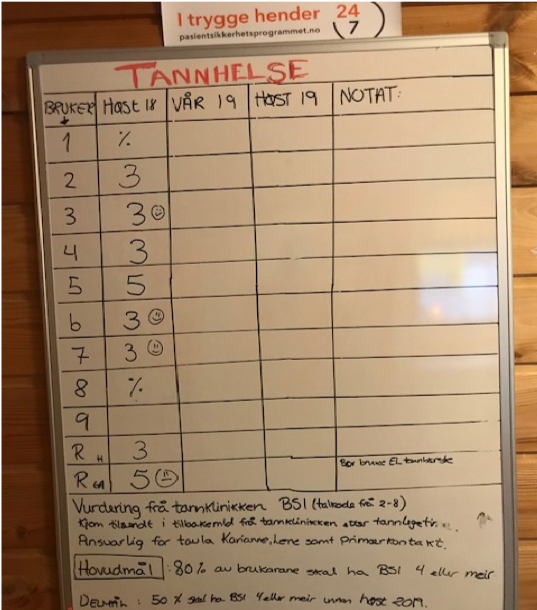 I trygge hender 24
7
pasientsikkerhetsprogrammet.no
TANNHELSE
BRUKER HØST 18 VÅR 19 HØST 19 NOTAT:
1 %
2 3
3 3
4 3
5 5
6 3
7 3
8 %
9
R H 3
R GA 5 Bør bruke EL tannbørste
Vurdering frå tannklinikken BSI (talkode frå 2-8)
Kjem tilsendt i tilbakemld frå tannklinikken etter
Ansvarlig for tavla Karianne, Lene samt primærkontakt.
Hovudmål: 80% av brukarane skal ha BSI 4 eller meir
DELMÅL: 50% skal ha BSI 4 eller meir innan høst 2019.